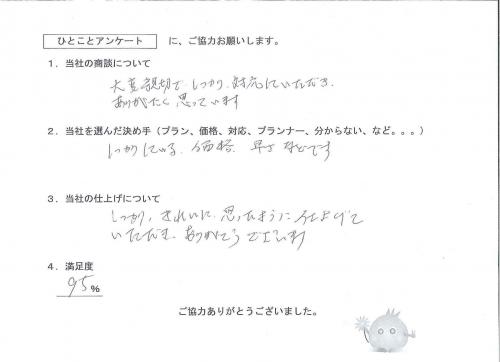 ひとことアンケート に、ご協力お願いします。
１．当社の商談について
大変親切で しっかり 対応していただき、
ありがたく思っています
２．当社を選んだ決め手（プラン、価格、対応、プランナー、分からない、など。。。）
しっかりしている、価格、早さ などです
３．当社の仕上げについて
しっかり、きれいに、思ったように 仕上げて
いただき、ありがとうございます
４．満足度
95％
ご協力ありがとうございました。